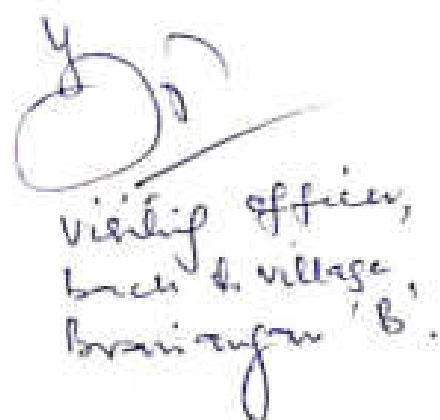 Visiting officer,
back to village
Branwar 'B'.